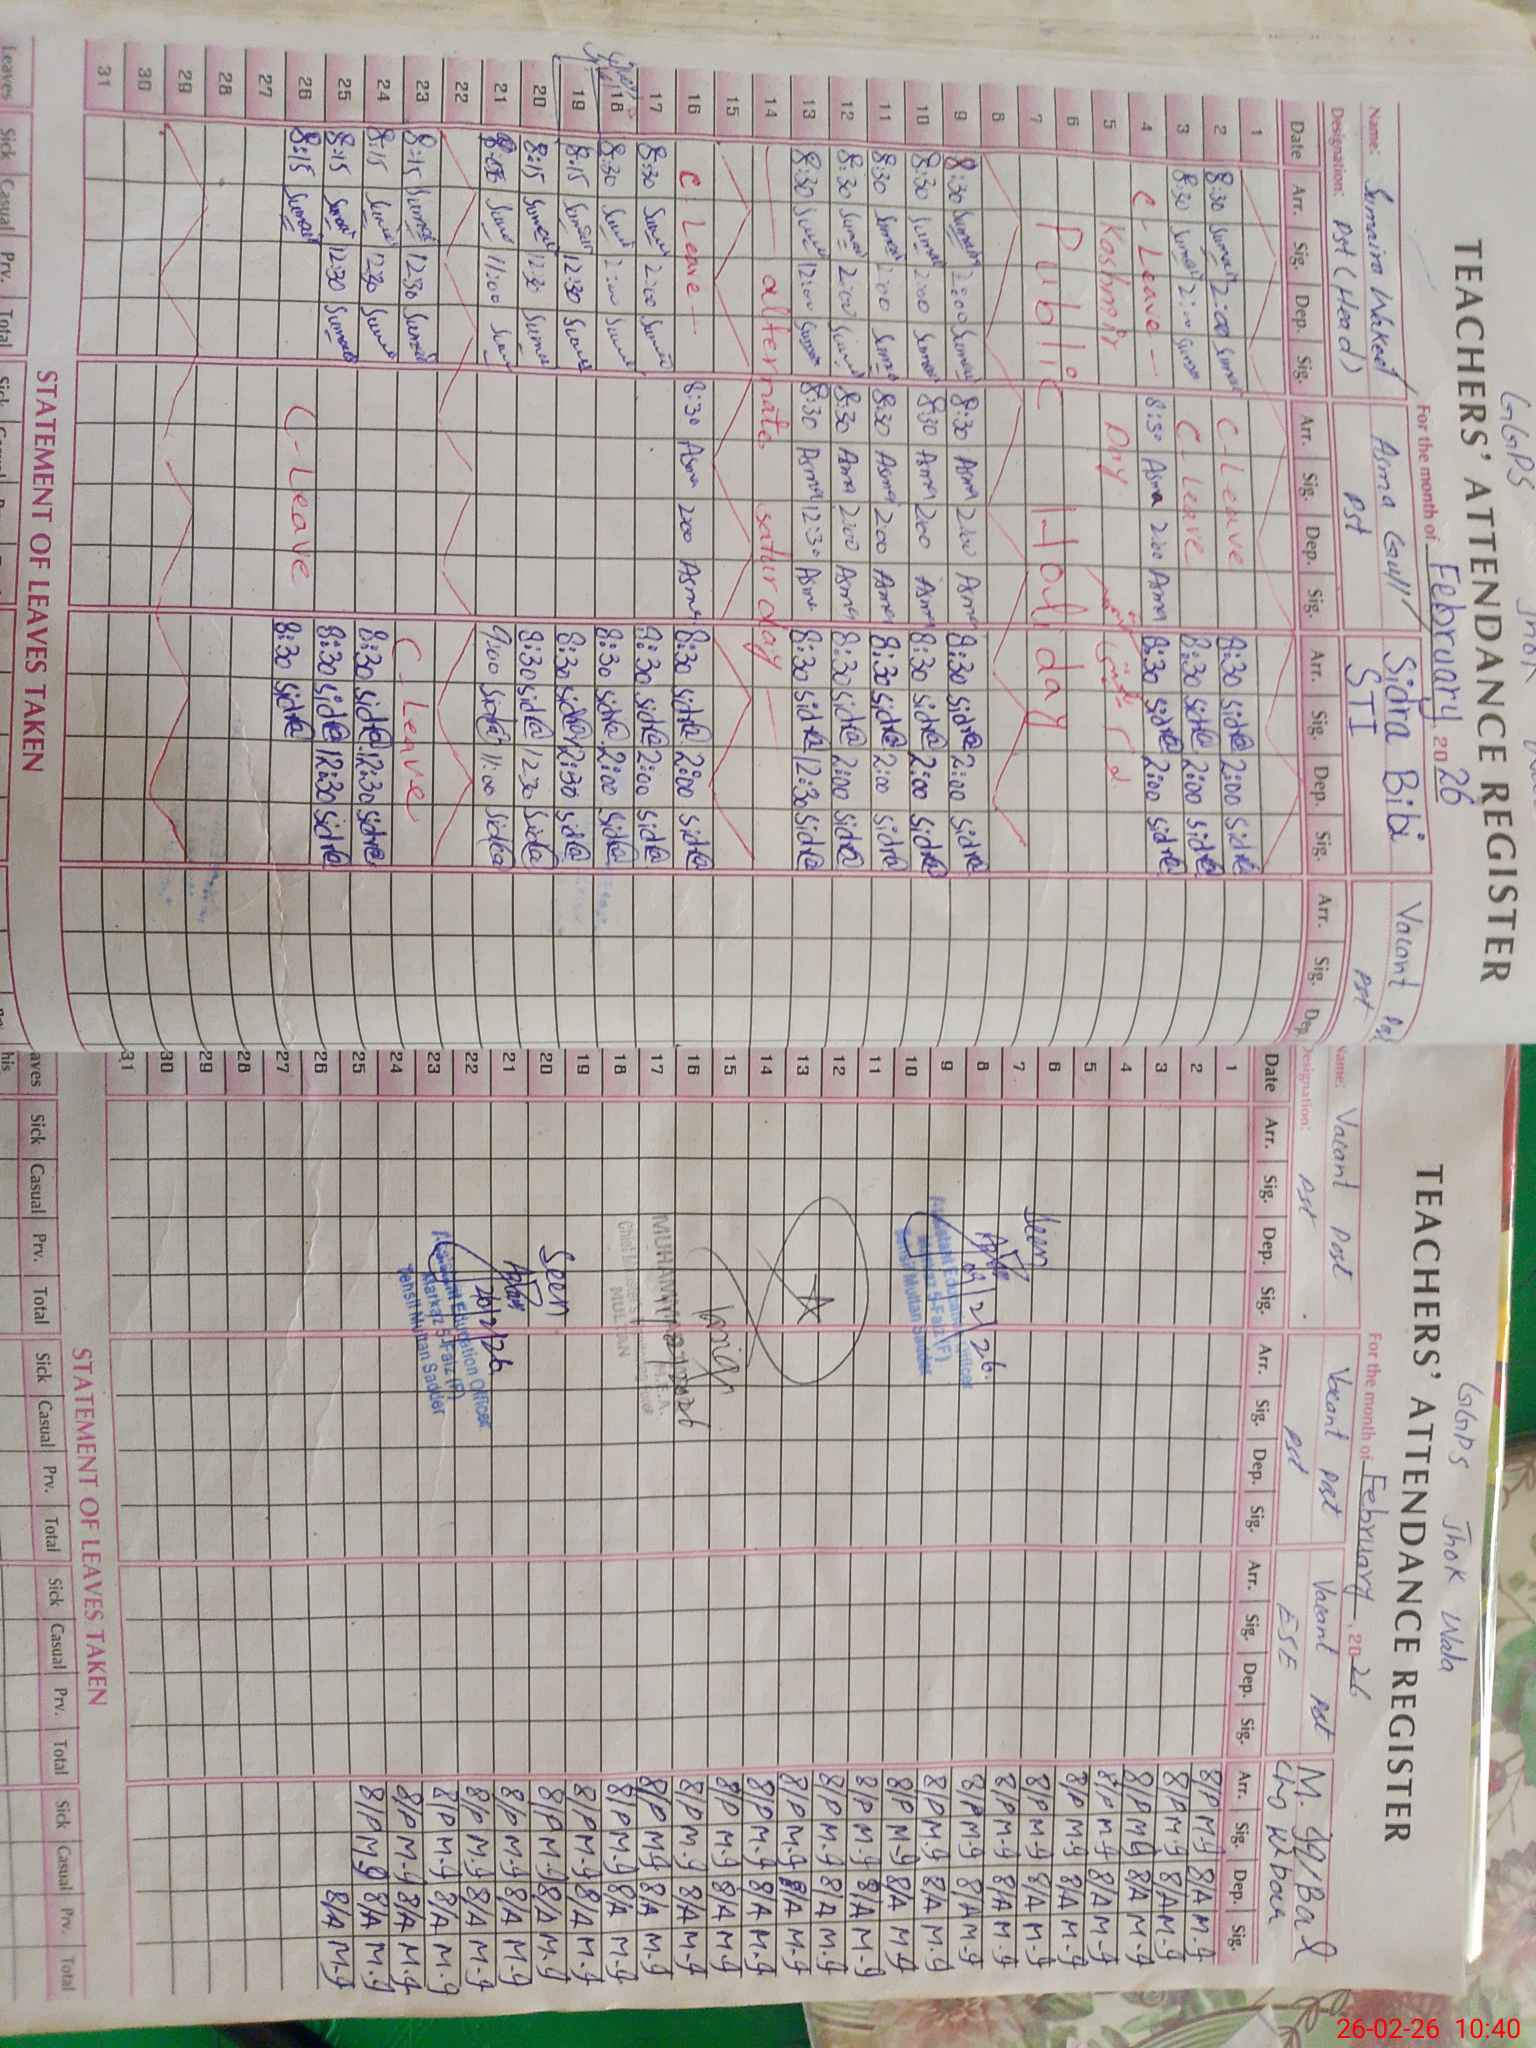 GGPS Jhok
TEACHERS' ATTENDANCE REGISTER
For the month of February 2026
Name: Sumaira Wakeel Asma Gull Sidra Bibi Vacant
Designation: Pst (Head) Pst STI Pst
Date Arr. Sig. Dep. Sig. Arr. Sig. Dep. Sig. Arr. Sig. Dep. Sig. Arr. Sig. Dep.
1
2 8:30 Sumai 2:00 Sumai C-Leave 8:30 Sidra 2:00 Sidra
3 8:30 Sumai 2:00 Sumai C-Leave 8:30 Sidra 2:00 Sidra
4 C-Leave 8:30 Asma 2:00 Asma 8:30 Sidra 2:00 Sidra
5 Kashmir Day
6
7 Public Holiday
8
9 8:30 Sumai 2:00 Sumai 8:30 Asma 2:00 Asma 8:30 Sidra 2:00 Sidra
10 8:30 Sumai 2:00 Sumai 8:30 Asma 2:00 Asma 8:30 Sidra 2:00 Sidra
11 8:30 Sumai 2:00 Sumai 8:30 Asma 2:00 Asma 8:30 Sidra 2:00 Sidra
12 8:30 Sumai 2:00 Sumai 8:30 Asma 2:00 Asma 8:30 Sidra 2:00 Sidra
13 8:30 Sumai 12:00 Sumai 8:30 Asma 12:30 Asma 8:30 Sidra 12:30 Sidra
14 alternate saturday
15
16 C Leave 8:30 Asma 2:00 Asma 8:30 Sidra 2:00 Sidra
17 8:30 Sumai 2:00 Sumai 8:30 Sidra 2:00 Sidra
18 8:30 Sumai 2:00 Sumai 8:30 Sidra 2:00 Sidra
19 8:15 Sumai 12:30 Sumai 8:30 Sidra 12:30 Sidra
20 8:15 Sumai 12:30 Sumai 8:30 Sidra 12:30 Sidra
21 Sumai 11:00 Sumai 9:00 Sidra 11:00 Sidra
22
23 8:15 Sumai 12:30 Sumai C-Leave
24 8:15 Sumai 12:30 Sumai 8:30 Sidra 12:30 Sidra
25 8:15 Sumai 12:30 Sumai 8:30 Sidra 12:30 Sidra
26 8:15 Sumai C-Leave 8:30 Sidra
27
28
29
30
31
STATEMENT OF LEAVES TAKEN
Leaves Sick Casual Prv. Total Sick
GGPS Jhok Wala
TEACHERS' ATTENDANCE REGISTER
For the month of February, 2026
Name: Vacant Post Vacant Pst Vacant Pst M. Iqbal
Designation: Pst Pst ESE
Date Arr. Sig. Dep. Sig. Arr. Sig. Dep. Sig. Arr. Sig. Dep. Sig. Arr. Sig. Dep. Sig.
1 8/P M.g 8/A M.g
2 8/P M.g 8/A M.g
3 8/P M.g 8/A M.g
4 8/P M.g 8/A M.g
5 8/P M.g 8/A M.g
6 8/P M.g 8/A M.g
7 8/P M.g 8/A M.g
8 8/P M.g 8/A M.g
9 8/P M.g 8/A M.g
10 8/P M.g 8/A M.g
11 8/P M.g 8/A M.g
12 8/P M.g 8/A M.g
13 8/P M.g 8/A M.g
14 8/P M.g 8/A M.g
15 8/P M.g 8/A M.g
16 8/P M.g 8/A M.g
17 8/P M.g 8/A M.g
18 8/P M.g 8/A M.g
19 8/P M.g 8/A M.g
20 8/P M.g 8/A M.g
21 8/P M.g 8/A M.g
22 8/P M.g 8/A M.g
23 8/P M.g 8/A M.g
24 8/P M.g 8/A M.g
25 8/P M.g 8/A M.g
26 8/A M.g
27
28
29
30
31
Seen
09/2/26
Assistant Education Officer
Markaz 5-Faiz (F)
Tehsil Multan Sadder
MUHAMMAD
MULTAN
Seen
20/2/26
Assistant Education Officer
Markaz 5-Faiz (F)
Tehsil Multan Sadder
STATEMENT OF LEAVES TAKEN
Sick Casual Prv. Total Sick Casual Prv. Total Sick Casual Prv. Total Sick Casual Prv. Total
26-02-26 10:40